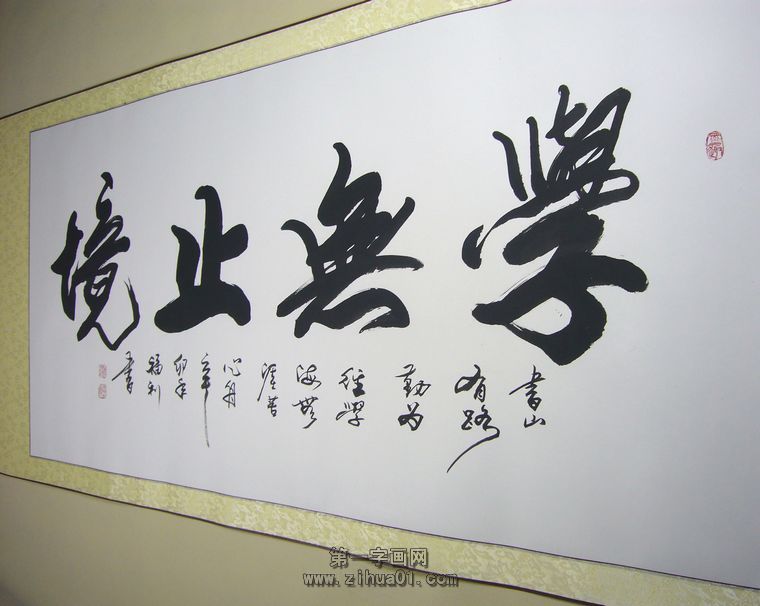 學無止境
書山
有路
勤为
径學
海無
涯苦
作舟
辛
卯年
福利
書
第一字画网
www.zihua01.com